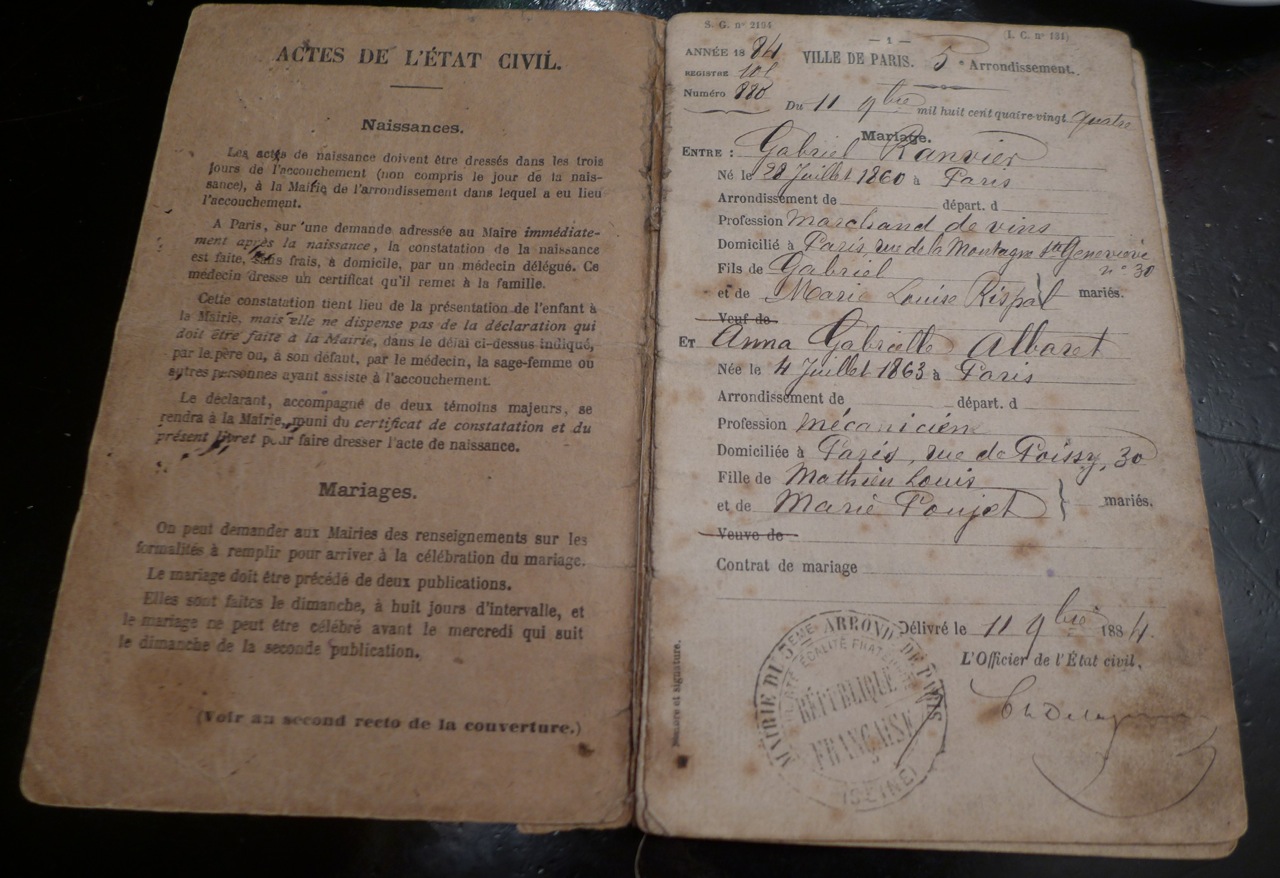 ACTES DE L'ÉTAT CIVIL.
Naissances.
Les actes de naissance doivent être dressés dans les trois
jours de l'accouchement (non compris le jour de la nais-
sance), à la Mairie de l'arrondissement dans lequel a eu lieu
l'accouchement.
A Paris, sur une demande adressée au Maire immédiate-
ment après la naissance, la constatation de la naissance
est faite, sans frais, à domicile, par un médecin délégué. Ce
médecin dresse un certificat qu'il remet à la famille.
Cette constatation tient lieu de la présentation de l'enfant à
la Mairie, mais elle ne dispense pas de la déclaration qui
doit être faite à la Mairie, dans le délai ci-dessus indiqué,
par le père ou, à son défaut, par le médecin, la sage-femme ou
autres personnes ayant assisté à l'accouchement.
Le déclarant, accompagné de deux témoins majeurs, se
rendra à la Mairie, muni du certificat de constatation et du
présent livret pour faire dresser l'acte de naissance.
Mariages.
On peut demander aux Mairies des renseignements sur les
formalités à remplir pour arriver à la célébration du mariage.
Le mariage doit être précédé de deux publications.
Elles sont faites le dimanche, à huit jours d'intervalle, et
le mariage ne peut être célébré avant le mercredi qui suit
le dimanche de la seconde publication.
(Voir au second recto de la couverture.)
S. G. n° 2194
(I. C. n° 131)
— 1 —
ANNÉE 1884
VILLE DE PARIS. 5e Arrondissement.
REGISTRE
Numéro 880
Du 11 9bre mil huit cent quatre-vingt quatre
Mariage.
ENTRE : Gabriel Ranvier
Né le 28 Juillet 1860 à Paris
Arrondissement de départ. d
Profession Marchand de vins
Domicilié à Paris, rue de la Montagne Ste Geneviève
n° 30
Fils de Gabriel
et de Marie Louise Rispal mariés.
Veuf de
ET Anna Gabrielle Albaret
Née le 4 Juillet 1863 à Paris
Arrondissement de départ. d
Profession Mécanicien
Domiciliée à Paris, rue de Poissy, 30
Fille de Mathieu Louis
et de Marie Poujet mariés.
Veuve de
Contrat de mariage
Délivré le 11 9bre 1884.
L'Officier de l'État civil,
MAIRIE DU 5EME ARRONDT DE PARIS
LIBERTÉ ÉGALITÉ FRATERNITÉ
RÉPUBLIQUE
FRANÇAISE
(SEINE)